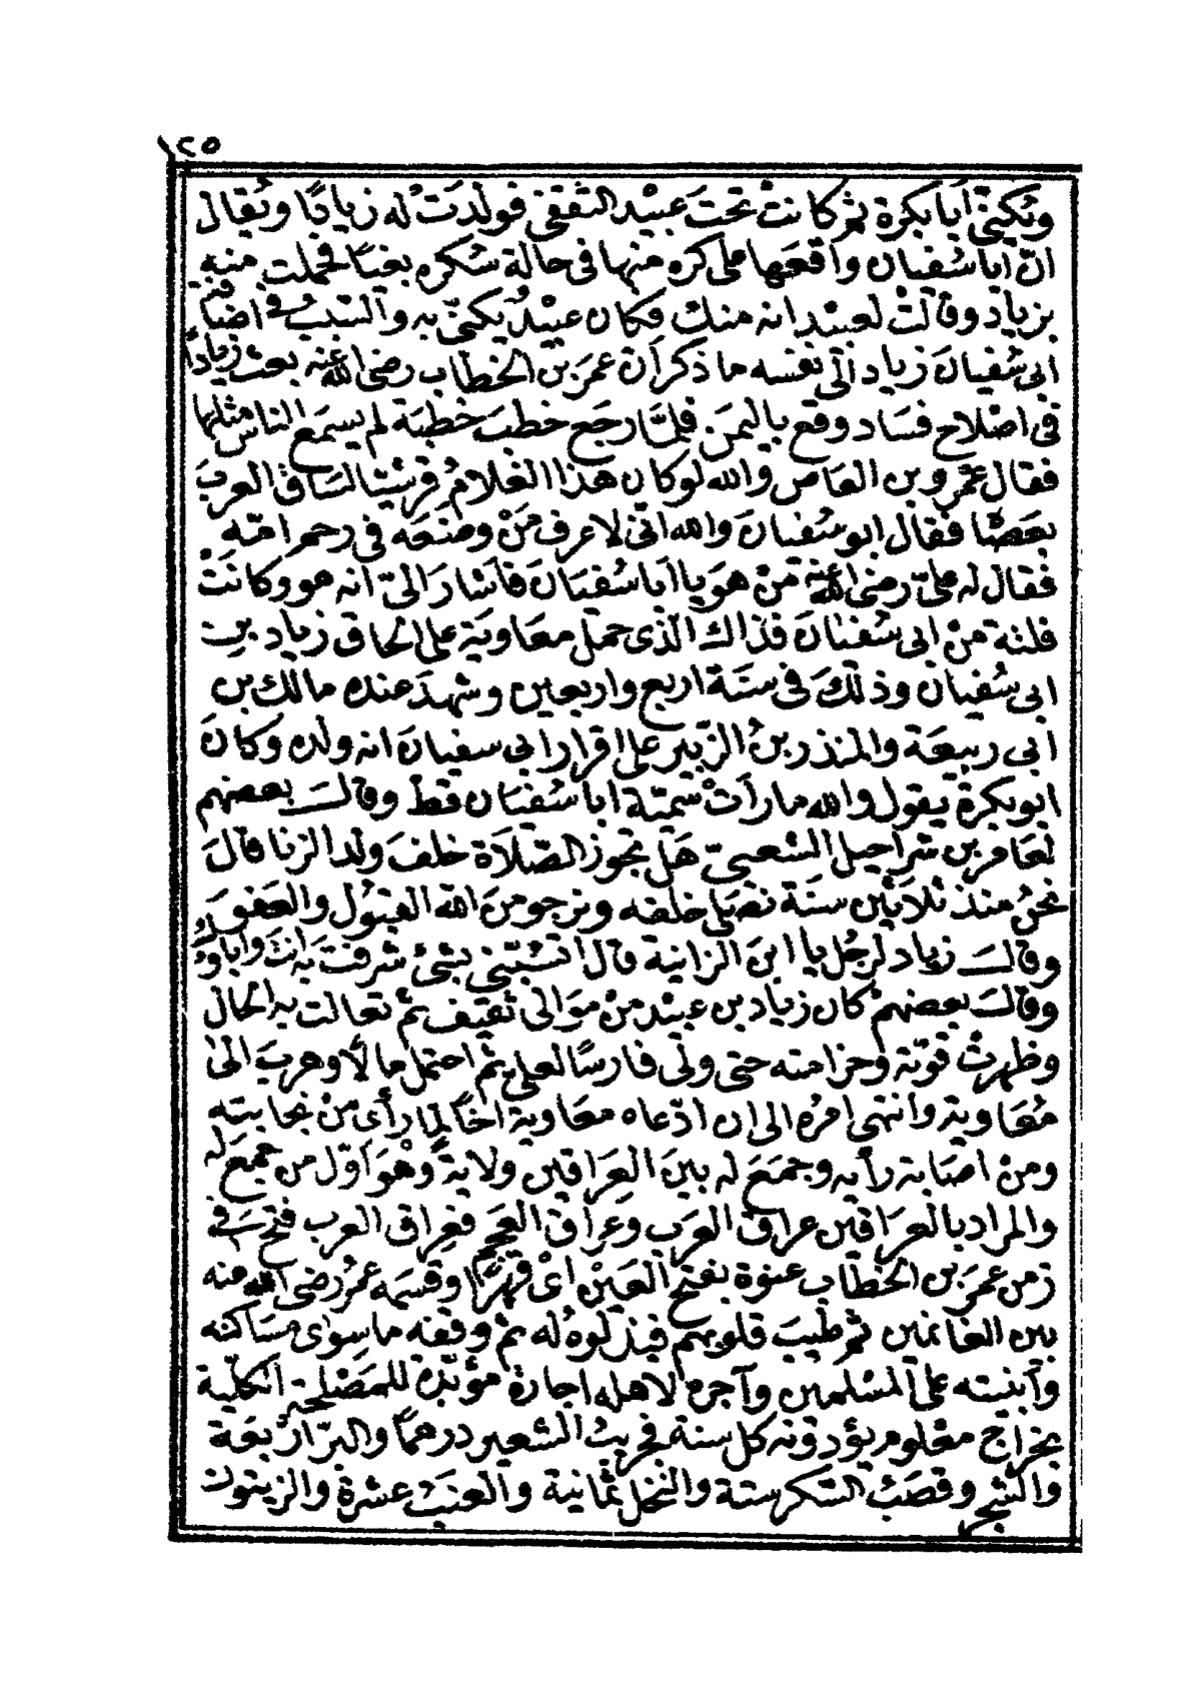 ١٢٥
وتكنىّ أبا بكرة ثم كانت تحتَ عبيد الثقفى فولدَتْ له زيادًا ويُقال
انّ ابا سُفيان واقعَها على كره منها فى حالة سُكره بغيًا فحملت منه
بزياد وقالتْ لعبيد انه منك فكان عبيْدٌ يكنىّ به والسّبَبُ فى اضافة
ابى سُفيانَ زياد الى نفسه ما ذكر أنّ عمرَ بن الخطاب رضى الله عنه بعث زيادًا
فى اصْلاح فسَاد وقع باليمَن فلمَّا رجَع خطبَ خطبَة لم يسمَع الناس مثلها
فقال عمرو بن العاص والله لو كان هذا الغلامُ قرشيًّا لسَاق العربَ
بعَصَا فقال ابو سُفيانَ والله انّى لاعرف مَنْ وضعَه فى رحم امّه
فقال له علىّ رضى الله عنه مَنْ هوَ يا ابا سُفيَانَ فاشارَ الىّ انه هو وكانتْ
فلتة منْ ابى سُفيَانَ فذاك الّذى حمَلَ معَاوية على الحاق زياد بن
ابى سُفيان وذلكَ فى سَنَة اربع واربعين وشهدَ عنده مالك بن
ابى ربيعَة والمنذر بنُ الزّبير على اقرار ابى سفيانَ انه ولده وكانَ
ابو بكرة يقول والله ما رأتْ سُميّة ابا سُفيَان قطّ وقالَ بعضهم
لعَامر بن شراحيل الشعبىّ هَل تجوز الصّلاة خلفَ ولد الزنا قالَ
نحنُ منذ ثلاثين سنَة نصَلى خلفه ونرجو منَ الله القبُول والعَفوَ
وقالَ زياد لرجُل يا ابنَ الزانية قال اتسُبّنى بشئ شرفتَ به انتَ وابوكَ
وقالَ بعضهمْ كان زياد بن عبيْد منْ مَوَالى ثقيف ثم تعالت به الحال
وظهرتْ قوّته وحزامته حتى ولّى فارسًا لعلى ثم احتمَل مالًا وهربَ الى
مُعَاوية وانتهى امرُه الى ان ادّعاه معَاوية اخًا لما رأى منْ نجابته
ومنْ اصَابة رأيه وجمَعَ له بينَ العِرَاقين ولايةً وهْوَ اوّل من جمعَ له
والمراد بالعرَاقين عراق العرَب وعراق العجَم فعِراق العرب فتحَ فى
زمن عمرَ بن الخطاب عنوة بفتح العَيْن اىْ قهرًا وقسمَه عمرُ رضى الله عنه
بين الغانمين ثم طيّبَ قلوبهم فبذلوهُ له ثم وقفه ما سِوَى مسَاكنه
وأبنيته على المسْلمين وآجره لاهله اجارة مؤبّدة للمصَلحة الكليّة
بخرَاج معْلوم يؤدّونه كل سنة فجريبُ الشعير درهماً والبرّ اربَعَة
والشجر وقصَبُ السّكر ستة والنخل ثمانية والعنَب عشرة والزيتون